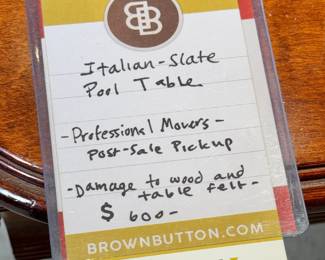 BB
Italian-Slate
Pool Table
-Professional Movers-
Post-Sale Pickup
-Damage to wood and
table felt-
$ 600-
BROWNBUTTON.COM